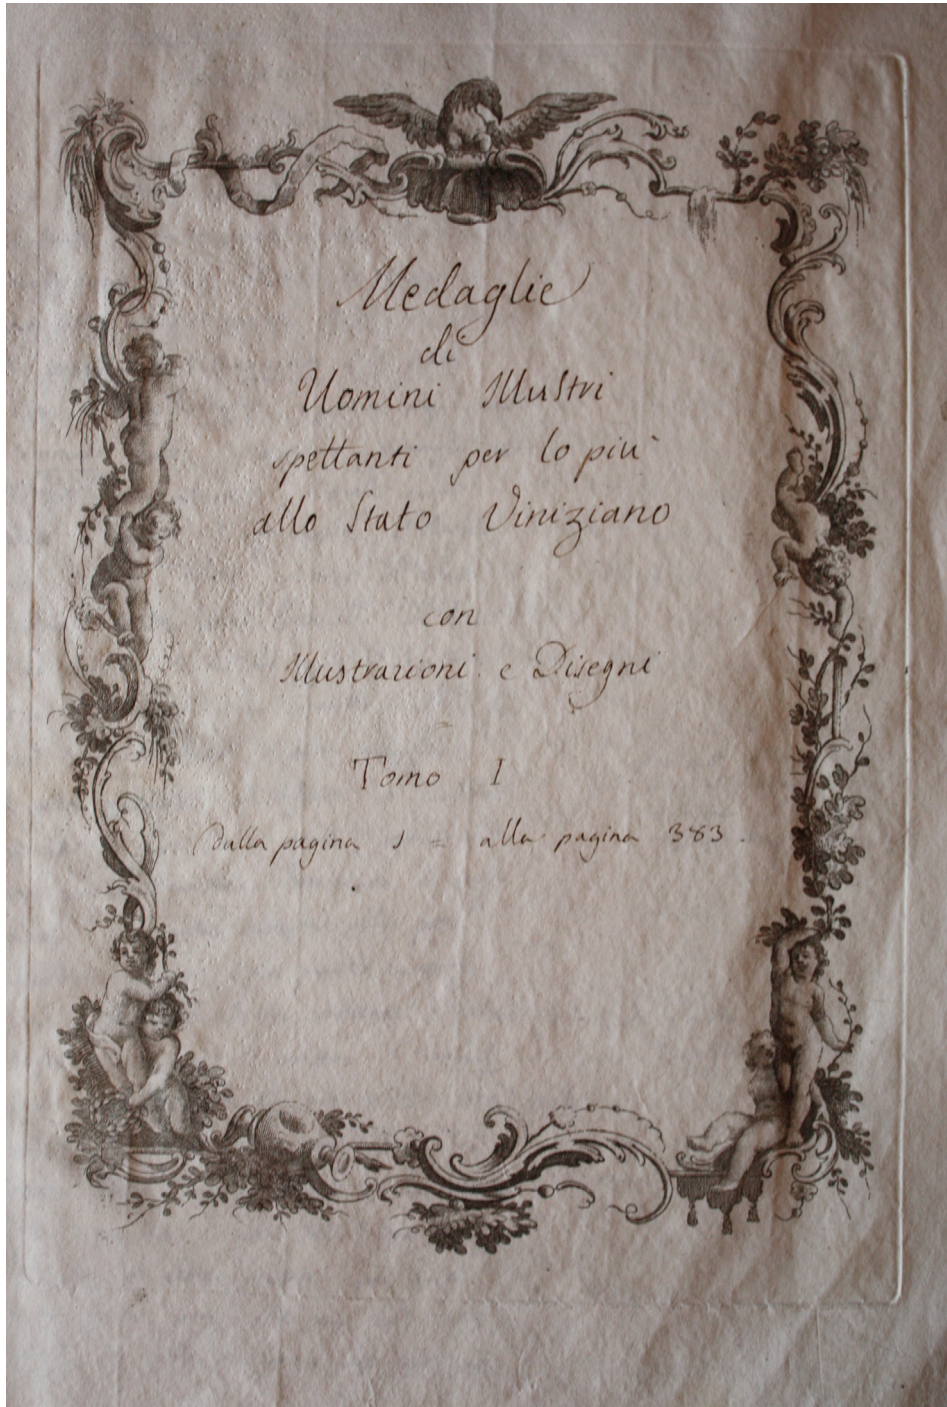 Medaglie
di
Uomini Illustri
spettanti per lo più
allo Stato Viniziano
con
Illustrazioni e Disegni
Tomo I
Dalla pagina 1 = alla pagina 383.